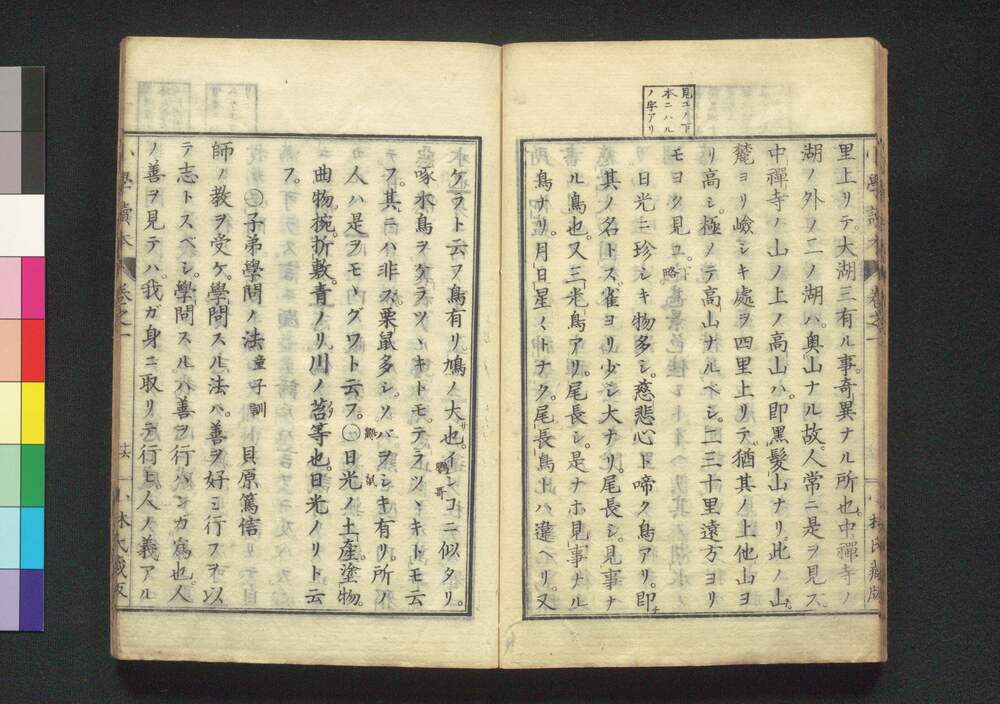 見ユノ下
本ニハル
ノ字アリ
里上リテ。大湖三有ル事。奇異ナル所也。中禪寺ノ
湖ノ外ノ二ノ湖ハ。奥山ナル故。人常ニ是ヲ見ズ。
中禪寺ノ山ノ上ノ高山ハ。即黒髮山ナリ。此ノ山。
麓ヨリ嶮シキ處ヲ四里上リテ。猶其ノ上他山ヨ
リ高シ。極ノテ高山ナルベシ。二三十里遠方ヨリ
モヨク見ユ。下略
日光ニ珍シキ物多シ。慈悲心ト啼ク鳥アリ。即チ
其ノ名トス。雀ヨリ少シ大ナリ。尾長シ。見事ナ
ル鳥也。又三光鳥アリ。尾長シ。是ナホ見事ナル
鳥ナリ。月日星ノトナク。尾長鳥トハ違ヘリ。又
小學讀本 卷之一 小林氏藏版
ケラト云フ鳥有リ。鳩ノ大サ也。インコニ似タリ。
鸚哥
啄木鳥ヲケラツヽキトモ。テラツヽキトモ云
フ。其ニハ非ズ。栗鼠多シ。ソバヲシキ有リ。所ノ
人ハ是ヲモヽグワト云フ。㊀日光ノ土産。塗物。
鼯鼠
曲物。椀。折敷。青ノリ。川ノ苔等也。日光ノリト云
フ。
㊀子弟學問ノ法 童子訓 貝原篤信
師ノ教ヲ受ケ。學問スル法ハ。善ヲ好ミ行フヲ以
テ志トスベシ。學問スルハ善ヲ行ハンガ爲也。人
ノ善ヲ見テハ。我ガ身ニ取リテ行ヒ。人ノ義アル
小學讀本 卷之一 小林氏藏版